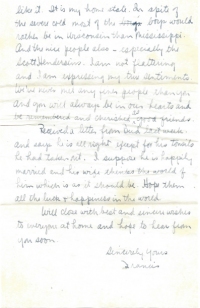 like it. It is my home state. In spite of
the severe cold most of the boys would
rather be in Wisconsin than Mississippi.
And the nice people also - especially the
Scott Hendersons. I am not flattering
and I am expressing my true sentiments
We've never met any finer people than you.
And you will always be in our hearts and
be remembered and cherished as friends.
Received a letter from Bud last week
and says he is all right except for his tonsils
he had taken out. I suppose he is happily
married and his wife thinks the world of
him which is as it should be. Hope them
all the luck & happiness in the world.
Will close with best and sincere wishes
to everyone at home and hope to hear from
you soon.
Sincerely yours
Francis